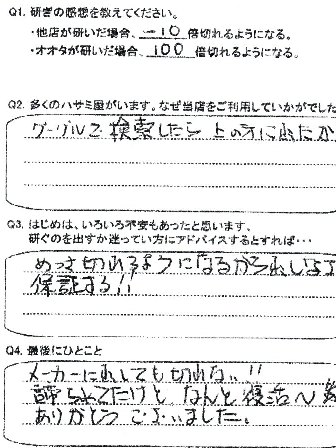 Q1. 研ぎの感想を教えてください。
・他店が研いだ場合、 －10 倍切れるようになる。
・オオタが研いだ場合、 100 倍切れるようになる。
Q2. 多くのハサミ屋がいます。なぜ当店をご利用していかがでした
グーグルで検索したら上の方にあったか
Q3. はじめは、いろいろ不安もあったと思います、
研ぐのを出すか迷っている方にアドバイスするとすれば・・・
めっさ切れるようになるから
保証する!!
Q4. 最後にひとこと
メーカーに しても切れない!!
てたけど なんと復活～
ありがとうございました。